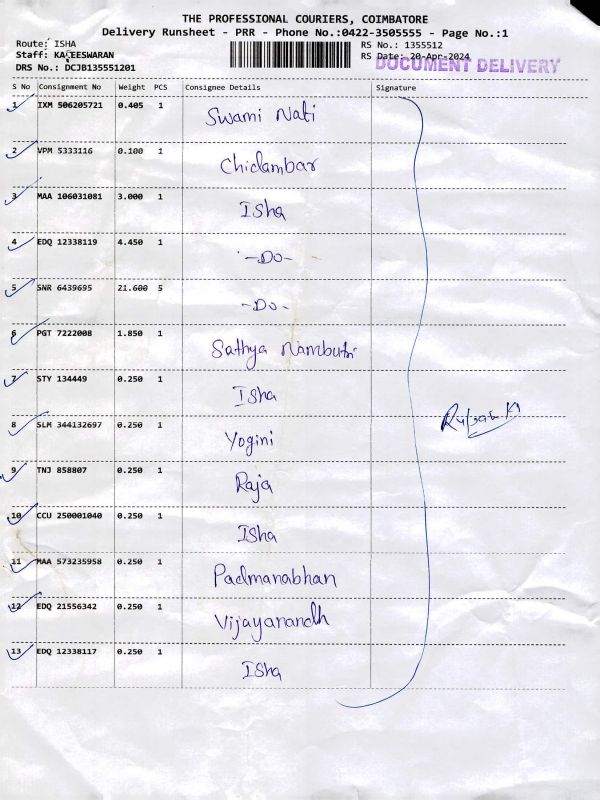 THE PROFESSIONAL COURIERS, COIMBATORE
Delivery Runsheet - PRR - Phone No.:0422-3505555 - Page No.:1
Route: ISHA
RS No.: 1355512
Staff: KAJEESWARAN
RS Date: 20-Apr-2024
DRS No.: DCJB135551201
DOCUMENT DELIVERY
S No Consignment No Weight PCS Consignee Details Signature
1 IXM 506205721 0.405 1 Swami Nati
2 VPM 5333116 0.100 1 Chidambar
3 MAA 106031081 3.000 1 Isha
4 EDQ 12338119 4.450 1 -Do-
5 SNR 6439695 21.600 5 -Do-
6 PGT 7222008 1.850 1 Sathya Nambutri
7 STY 134449 0.250 1 Isha
8 SLM 344132697 0.250 1 Yogini
9 TNJ 858807 0.250 1 Raja
10 CCU 250001040 0.250 1 Isha
11 MAA 573235958 0.250 1 Padmanabhan
12 EDQ 21556342 0.250 1 Vijayanandh
13 EDQ 12338117 0.250 1 Isha